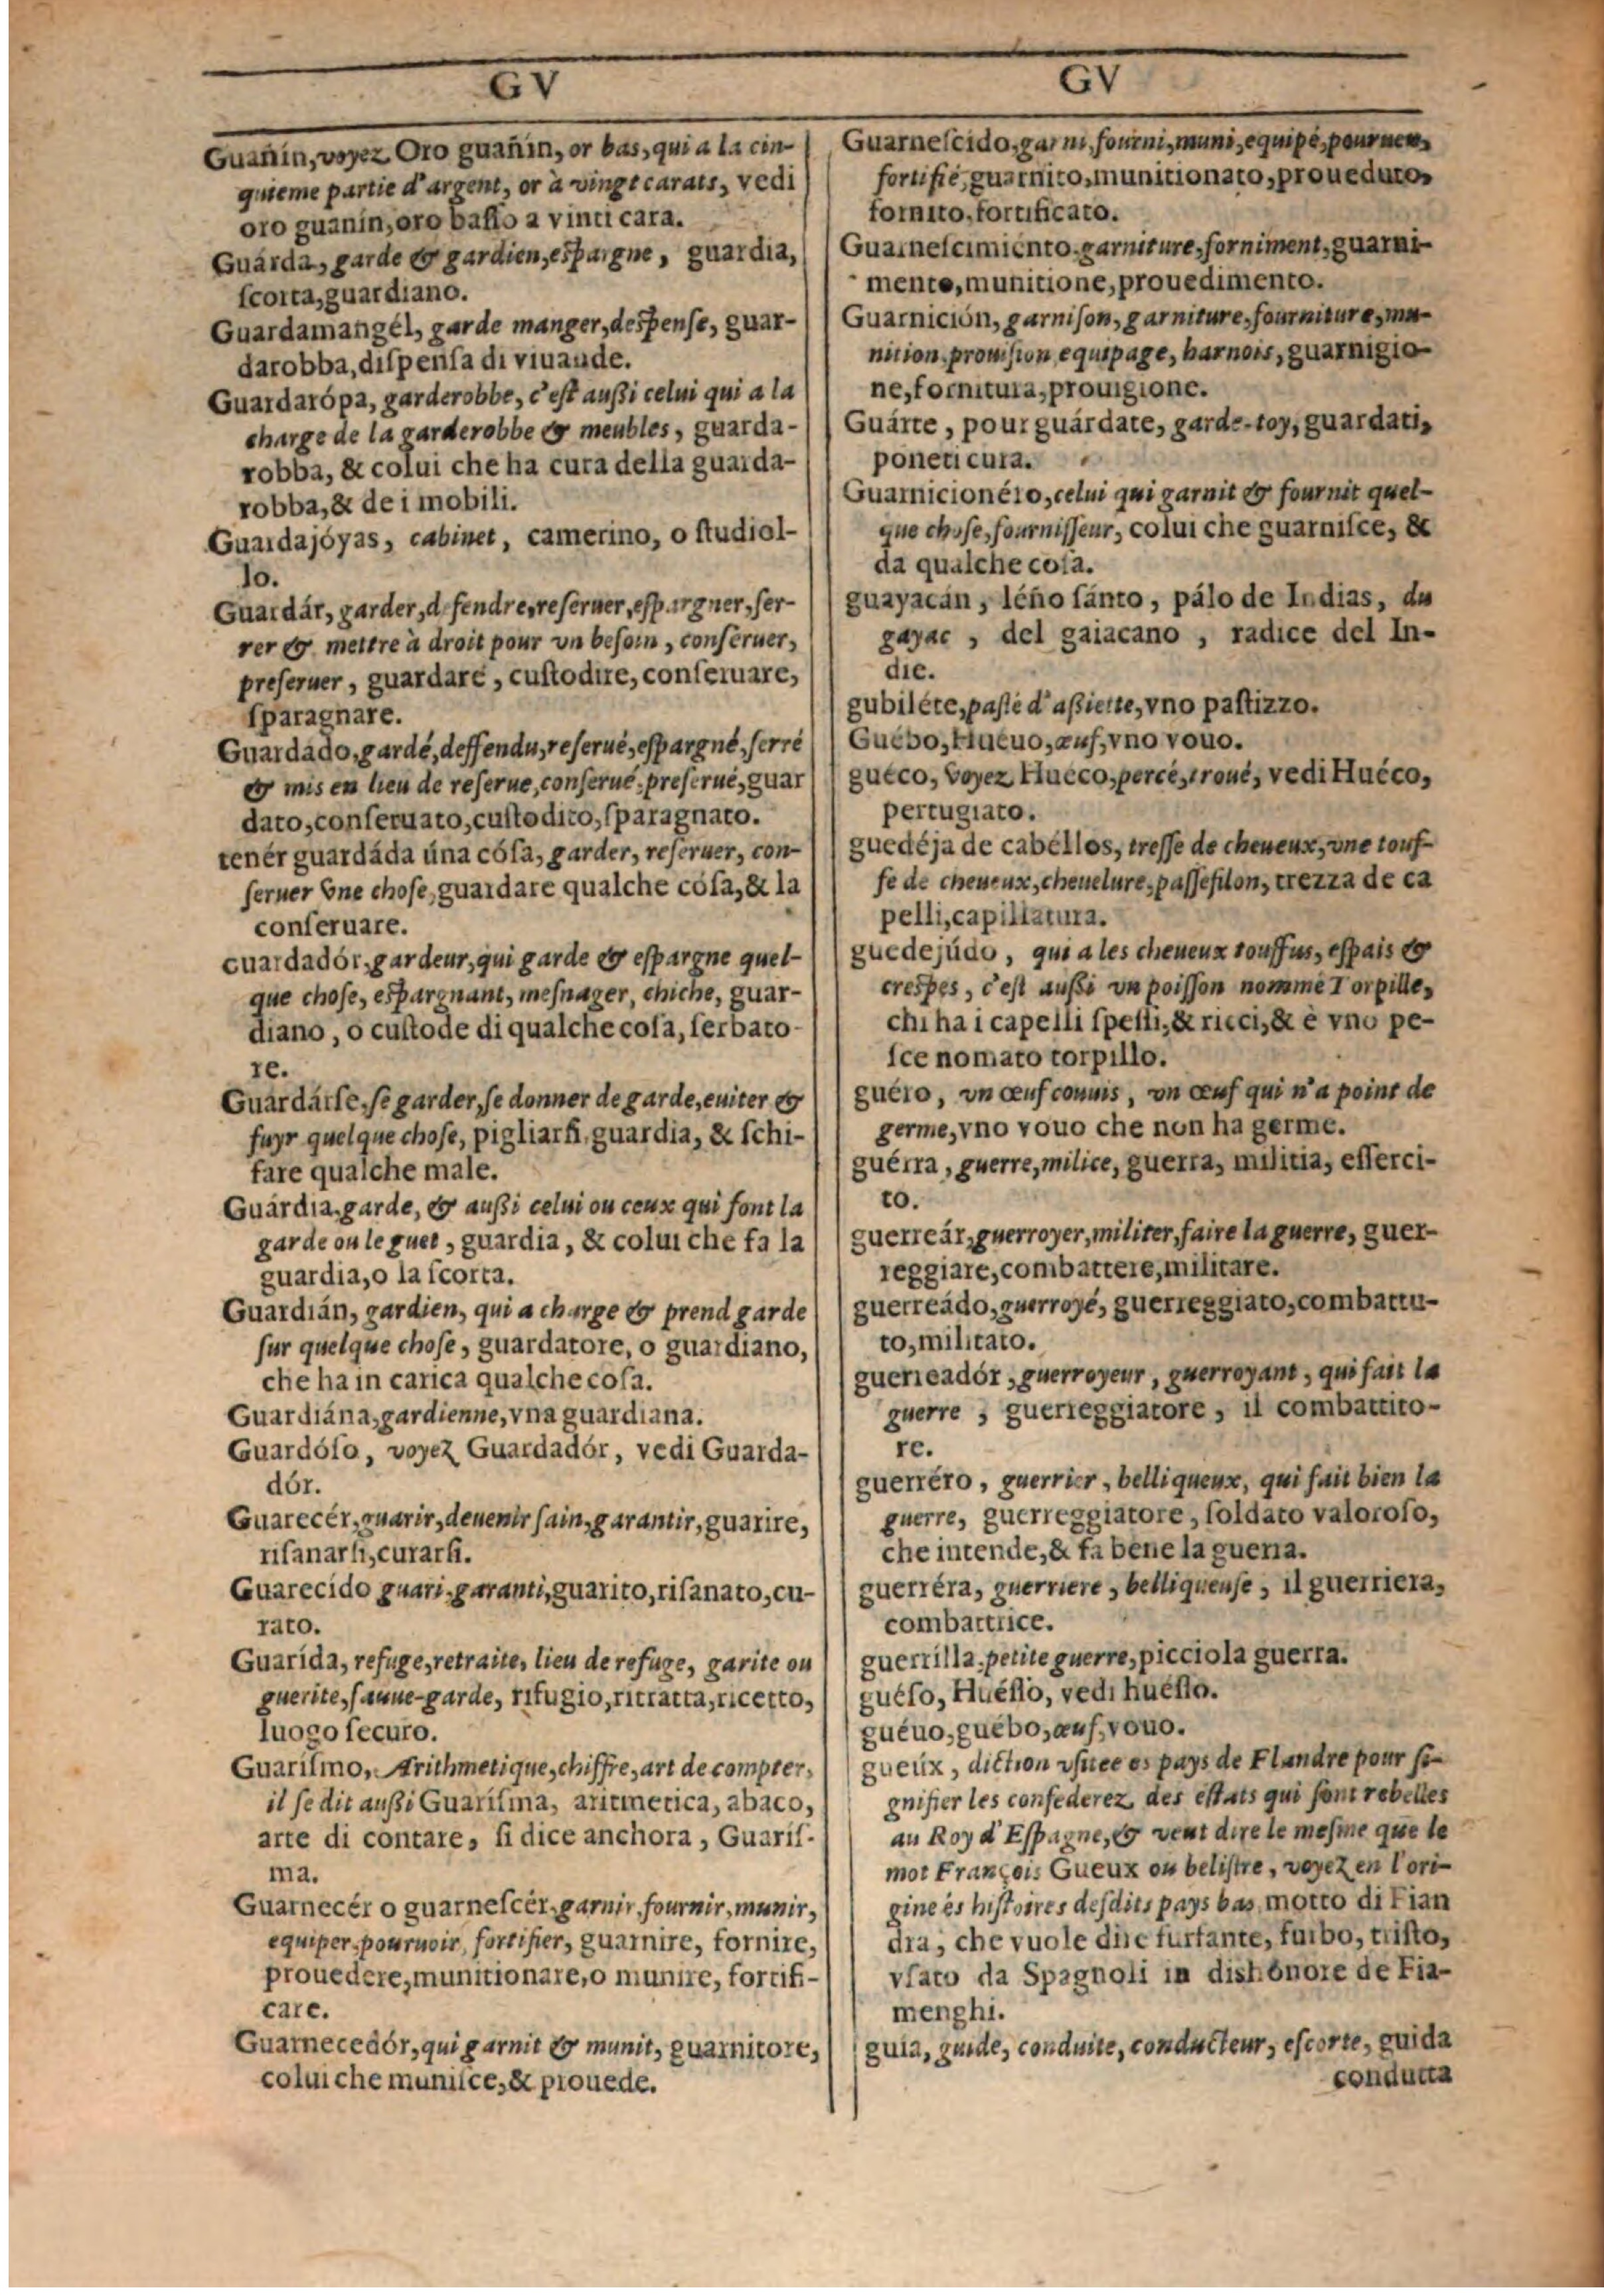 GV
Guañín, voyez Oro guañín, or bas, qui a la cin-
quieme partie d'argent, or à vingt carats, vedi
oro guanín, oro baſſo a vinti cara.
Guárda, garde & gardien, eſpargne, guardia,
ſcorta, guardiano.
Guardamangél, garde manger, deſpenſe, guar-
darobba, diſpenſa di viuande.
Guardarópa, garderobbe, c'eſt auſſi celui qui a la
charge de la garderobbe & meubles, guarda-
robba, & colui che ha cura della guarda-
robba, & de i mobili.
Guardajóyas, cabinet, camerino, o ſtudiol-
lo.
Guardár, garder, defendre, reſeruer, eſpargner, ſer-
rer & mettre à droit pour vn beſoin, conſeruer,
preſeruer, guardare, cuſtodire, conſeruare,
ſparagnare.
Guardádo, gardé, deffendu, reſerué, eſpargné, ſerré
& mis en lieu de reſerue, conſerué, preſerué, guar
dato, conſeruato, cuſtodito, ſparagnato.
tenér guardáda úna cóſa, garder, reſeruer, con-
ſeruer vne choſe, guardare qualche coſa, & la
conſeruare.
cuardadór, gardeur, qui garde & eſpargne quel-
que choſe, eſpargnant, meſnager, chiche, guar-
diano, o cuſtode di qualche coſa, ſerbato-
re.
Guardárſe, ſe garder, ſe donner de garde, euiter &
fuyr quelque choſe, pigliarſi guardia, & ſchi-
fare qualche male.
Guárdia, garde, & auſſi celui ou ceux qui font la
garde ou le guet, guardia, & colui che fa la
guardia, o la ſcorta.
Guardián, gardien, qui a charge & prend garde
ſur quelque choſe, guardatore, o guardiano,
che ha in carica qualche coſa.
Guardiána, gardienne, vna guardiana.
Guardóſo, voyez Guardadór, vedi Guarda-
dór.
Guarecér, guarir, deuenir ſain, garantir, guarire,
riſanarſi, curarſi.
Guarecído guari, garanti, guarito, riſanato, cu-
rato.
Guarída, refuge, retraite, lieu de refuge, garite ou
guerite, ſauue-garde, rifugio, ritratta, ricetto,
luogo ſecuro.
Guariſmo, Arithmetique, chiffre, art de compter,
il ſe dit auſſi Guaríſma, aritmetica, abaco,
arte di contare, ſi dice anchora, Guariſ-
ma.
Guarnecér o guarneſcér, garnir, fournir, munir,
equiper, pouruoir, fortifier, guarnire, fornire,
prouedere, munitionare, o munire, fortifi-
care.
Guarnecedór, qui garnit & munit, guarnitore,
colui che muniſce, & prouede.
GV
Guarneſcido, garni, fourni, muni, equipé, pourueu,
fortifié, guarnito, munitionato, proueduto,
fornito, fortificato.
Guarneſcimiénto, garniture, forniment, guarni-
mento, munitione, prouedimento.
Guarnición, garniſon, garniture, fourniture, mu-
nition, prouiſion equipage, harnois, guarnigio-
ne, fornitura, prouigione.
Guárte, pour guárdate, garde-toy, guardati,
poneti cura.
Guarnicionéro, celui qui garnit & fournit quel-
que choſe, fourniſſeur, colui che guarniſce, &
da qualche coſa.
guayacán, léño ſánto, pálo de Indias, du
gayac, del gaiacano, radice del In-
die.
gubiléte, paſté d'aſſiette, vno paſtizzo.
Guébo, Huéuo, œuf, vno vouo.
guéco, voyez Huéco, percé, troué, vedi Huéco,
pertugiato.
guedéja de cabéllos, treſſe de cheueux, vne touf-
fe de cheueux, cheuelure, paſſefilon, trezza de ca
pelli, capillatura.
guedejúdo, qui a les cheueux touffus, eſpais &
creſpes, c'eſt auſſi vn poiſſon nommé Torpille,
chi ha i capelli ſpeſſi, & ricci, & è vno pe-
ſce nomato torpillo.
guéro, vn œuf couuis, vn œuf qui n'a point de
germe, vno vouo che non ha germe.
guérra, guerre, milice, guerra, militia, eſſerci-
to.
guerreár, guerroyer, militer, faire la guerre, guer-
reggiare, combattere, militare.
guerreádo, guerroyé, guerreggiato, combattu-
to, militato.
guerreadór, guerroyeur, guerroyant, qui fait la
guerre, guerreggiatore, il combattito-
re.
guerréro, guerrier, belliqueux, qui fait bien la
guerre, guerreggiatore, ſoldato valoroſo,
che intende, & fa bene la guerra.
guerréra, guerriere, belliqueuſe, il guerriera,
combattrice.
guerrilla, petite guerre, picciola guerra.
guéſo, Huéſſo, vedi huéſſo.
guéuo, guébo, œuf, vouo.
gueúx, diction vſitee es pays de Flandre pour ſi-
gnifier les confederez des eſtats qui ſont rebelles
au Roy d'Eſpagne, & veut dire le meſme que le
mot François Gueux ou beliſtre, voyez en l'ori-
gine és hiſtoires deſdits pays bas, motto di Fian
dra, che vuole dire furfante, furbo, triſto,
vſato da Spagnoli in dishonore de Fia-
menghi.
guia, guide, conduite, conducteur, eſcorte, guida
conducta